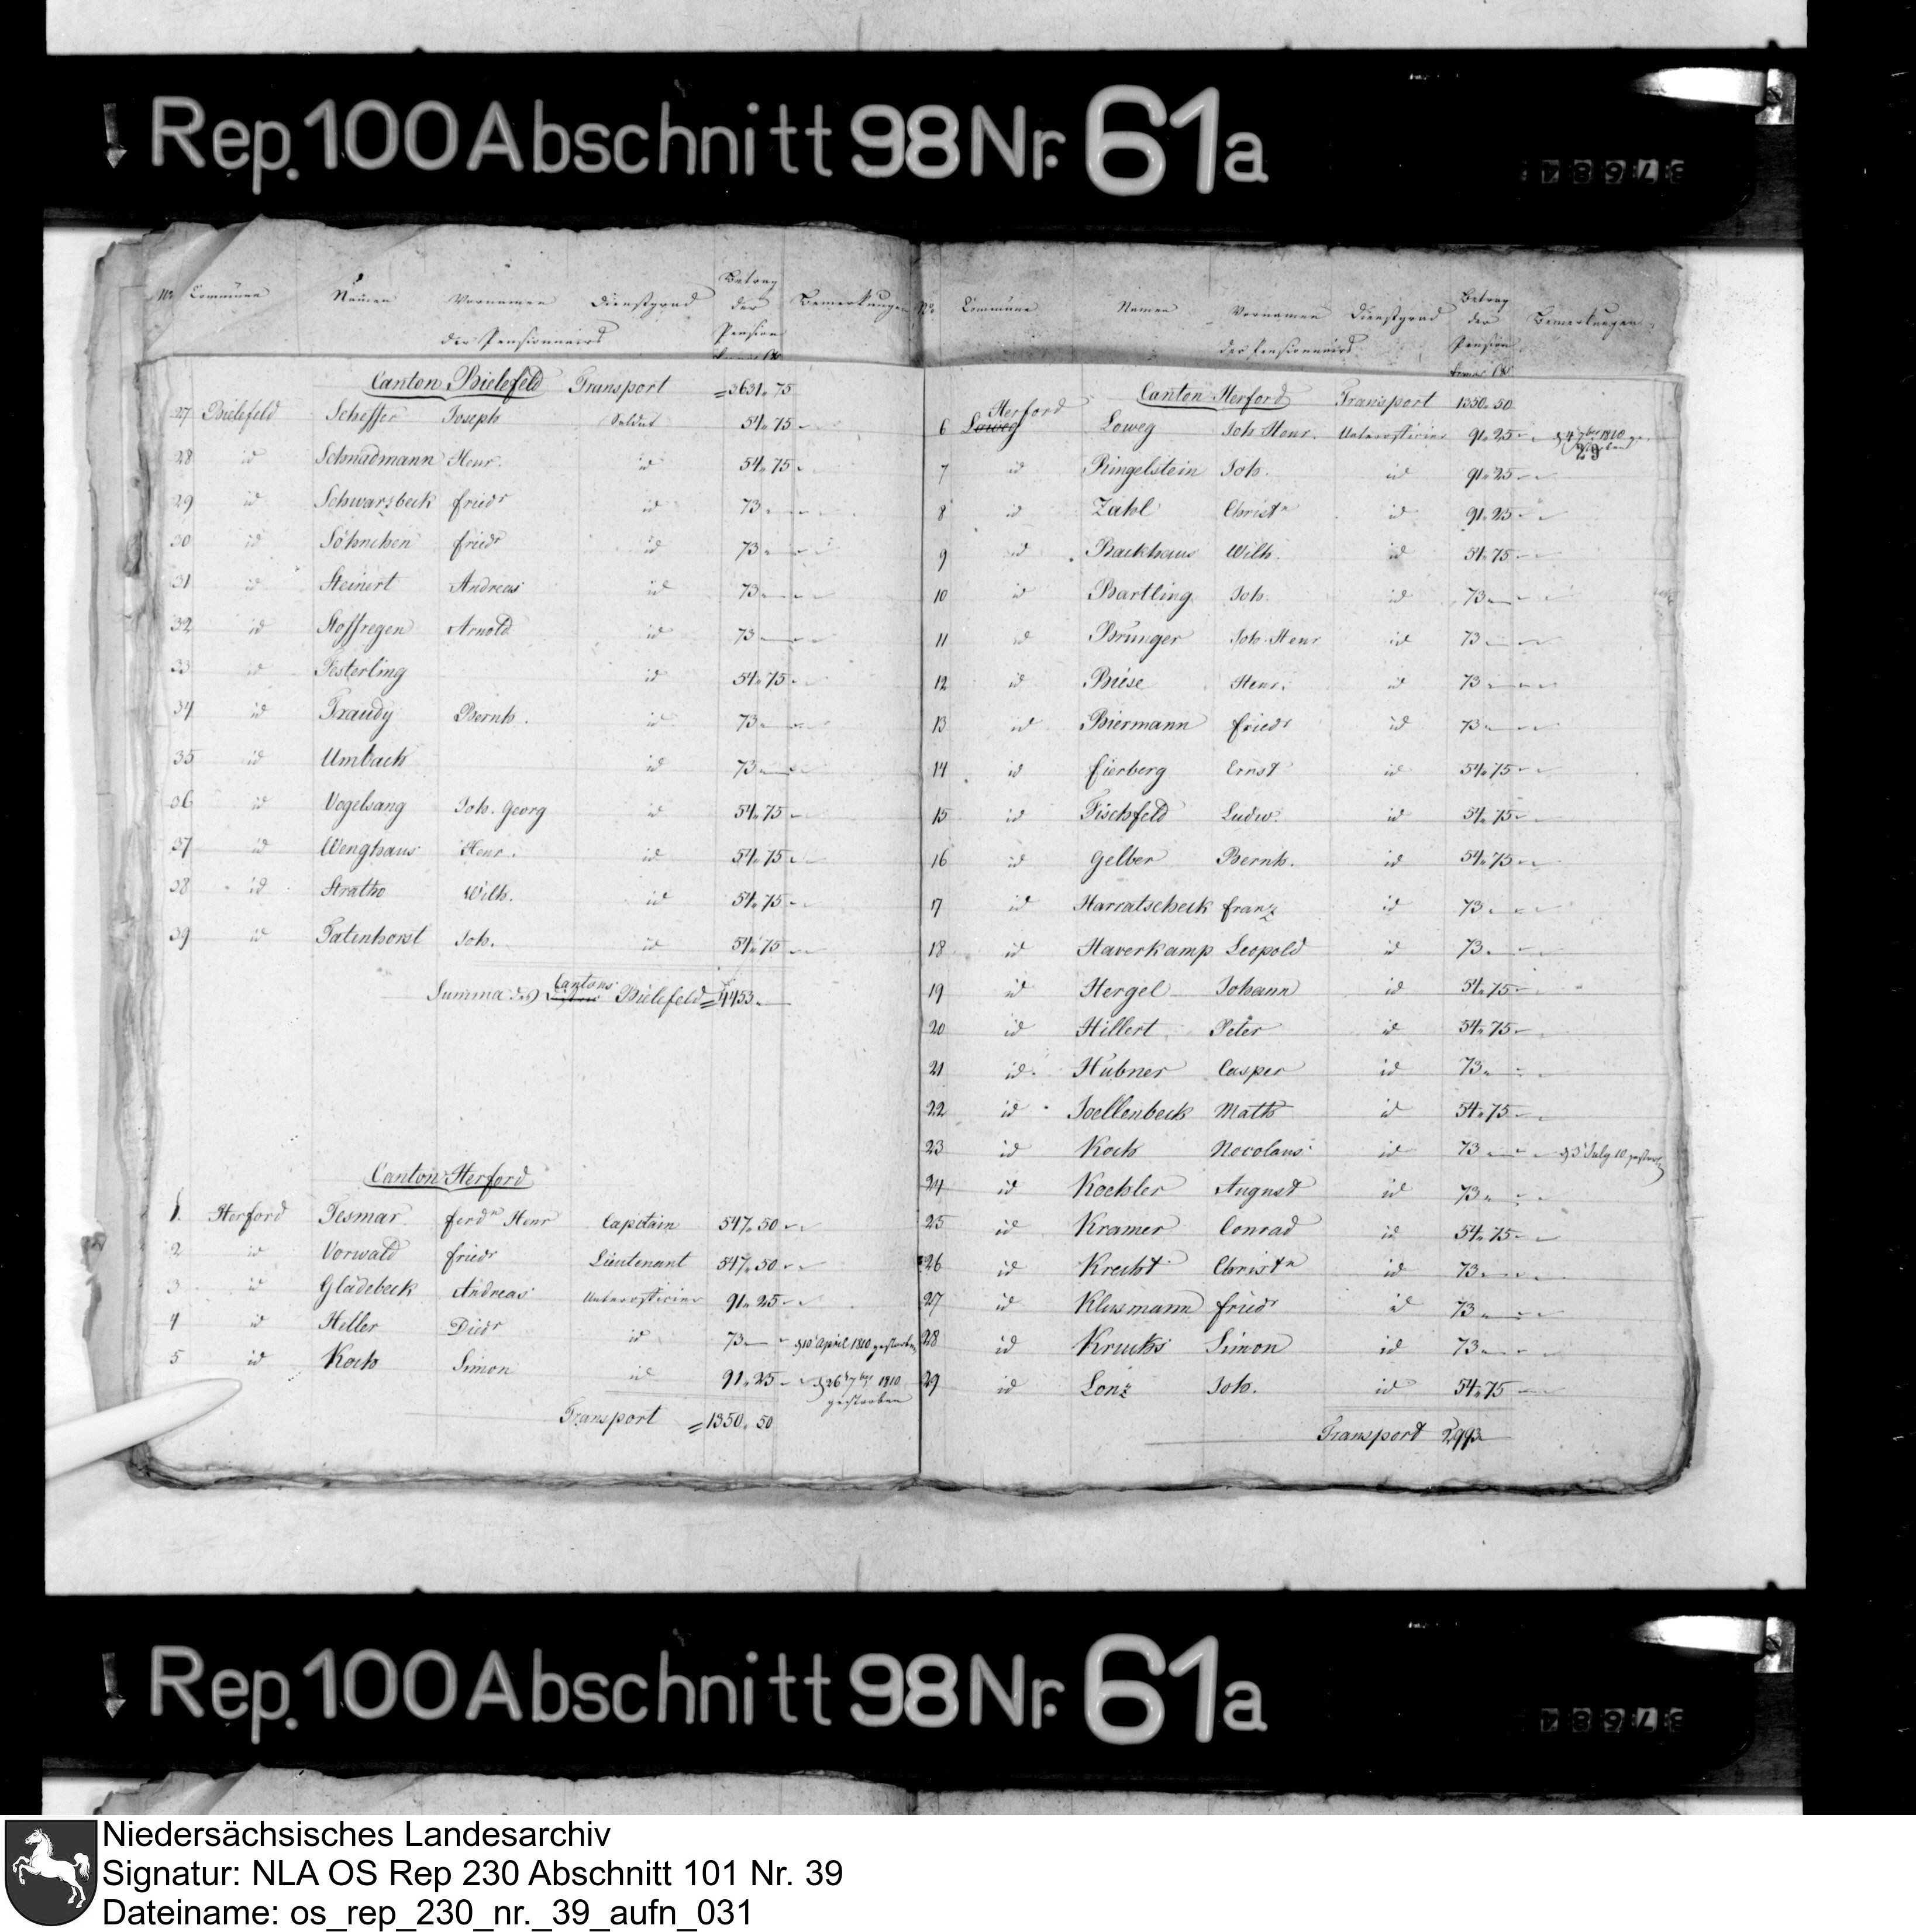 Rep. 100 Abschnitt 98 Nr. 61a
37684
No Commune Namen Vornamen Dienstgrad Betrag der Pension Bemerkungen
der Pensionnairs
Canton Bielefeld Transport = 3631. 75
27 Bielefeld Scheffer Joseph Soldat 54. 75
28 id Schnadmann Henr. id 54. 75
29 id Schwarzbeck Friedr id 73
30 id Söhnchen Friedr id 73
31 id Steinert Andreas id 73
32 id Stoffregen Arnold id 73
33 id Testerling id 54. 75
34 id Traudy Bernh. id 73
35 id Umbach id 73
36 id Vogelsang Joh. Georg id 54. 75
37 id Wenghaus Henr. id 54. 75
38 id Stratho Wilh. id 54. 75
39 id Tatenhorst Joh. id 54. 75
Summa des Cantons Bielefeld = 4453.
Canton Herford
1. Herford Tesmar Ferdn Henr Capitain 547. 50
2 id Vorwald Friedr Lieutenant 547. 50
3 id Gladebeck Andreas Unterofficier 91. 25
4 id Heller Diedr id 73 10 April 1810 gestorben
5 id Koch Simon id 91. 25 26 7ber 1810 gestorben
Transport = 1350. 50
No Commune Namen Vornamen Dienstgrad Betrag der Pension Bemerkungen
der Pensionnairs
Canton Herford Transport 1350. 50
6 Loweg Herford Loweg Joh Henr. Unterofficier 91. 25 4 7ber 1810
29
7 id Ringelstein Joh. id 91. 25
8 id Zahl Christn id 91. 25
9 id Backhaus Wilh. id 54. 75
10 id Bartling Joh. id 73
11 id Brünger Joh. Henr id 73
12 id Büse Henr. id 73
13 id Biermann Friedr id 73
14 id Fierberg Ernst id 54. 75
15 id Fischfeld Ludw. id 54. 75
16 id Gelber Bernh. id 54. 75
17 id Harratscheck Franz id 73
18 id Haverkamp Leopold id 73
19 id Hergel Johann id 54. 75
20 id Hillert Peter id 54. 75
21 id Hübner Casper id 73
22 id Joellenbeck Math id 54. 75
23 id Koch Necolaus id 73 3 July 10
24 id Koehler August id 73
25 id Kramer Conrad id 54. 75
26 id Krecht Christn id 73
27 id Klusmann Friedr id 73
28 id Kruchs Simon id 73
29 id Lonz Joh. id 54. 75
Transport 2993
Rep. 100 Abschnitt 98 Nr. 61a
37684
Niedersächsisches Landesarchiv
Signatur: NLA OS Rep 230 Abschnitt 101 Nr. 39
Dateiname: os_rep_230_nr._39_aufn_031